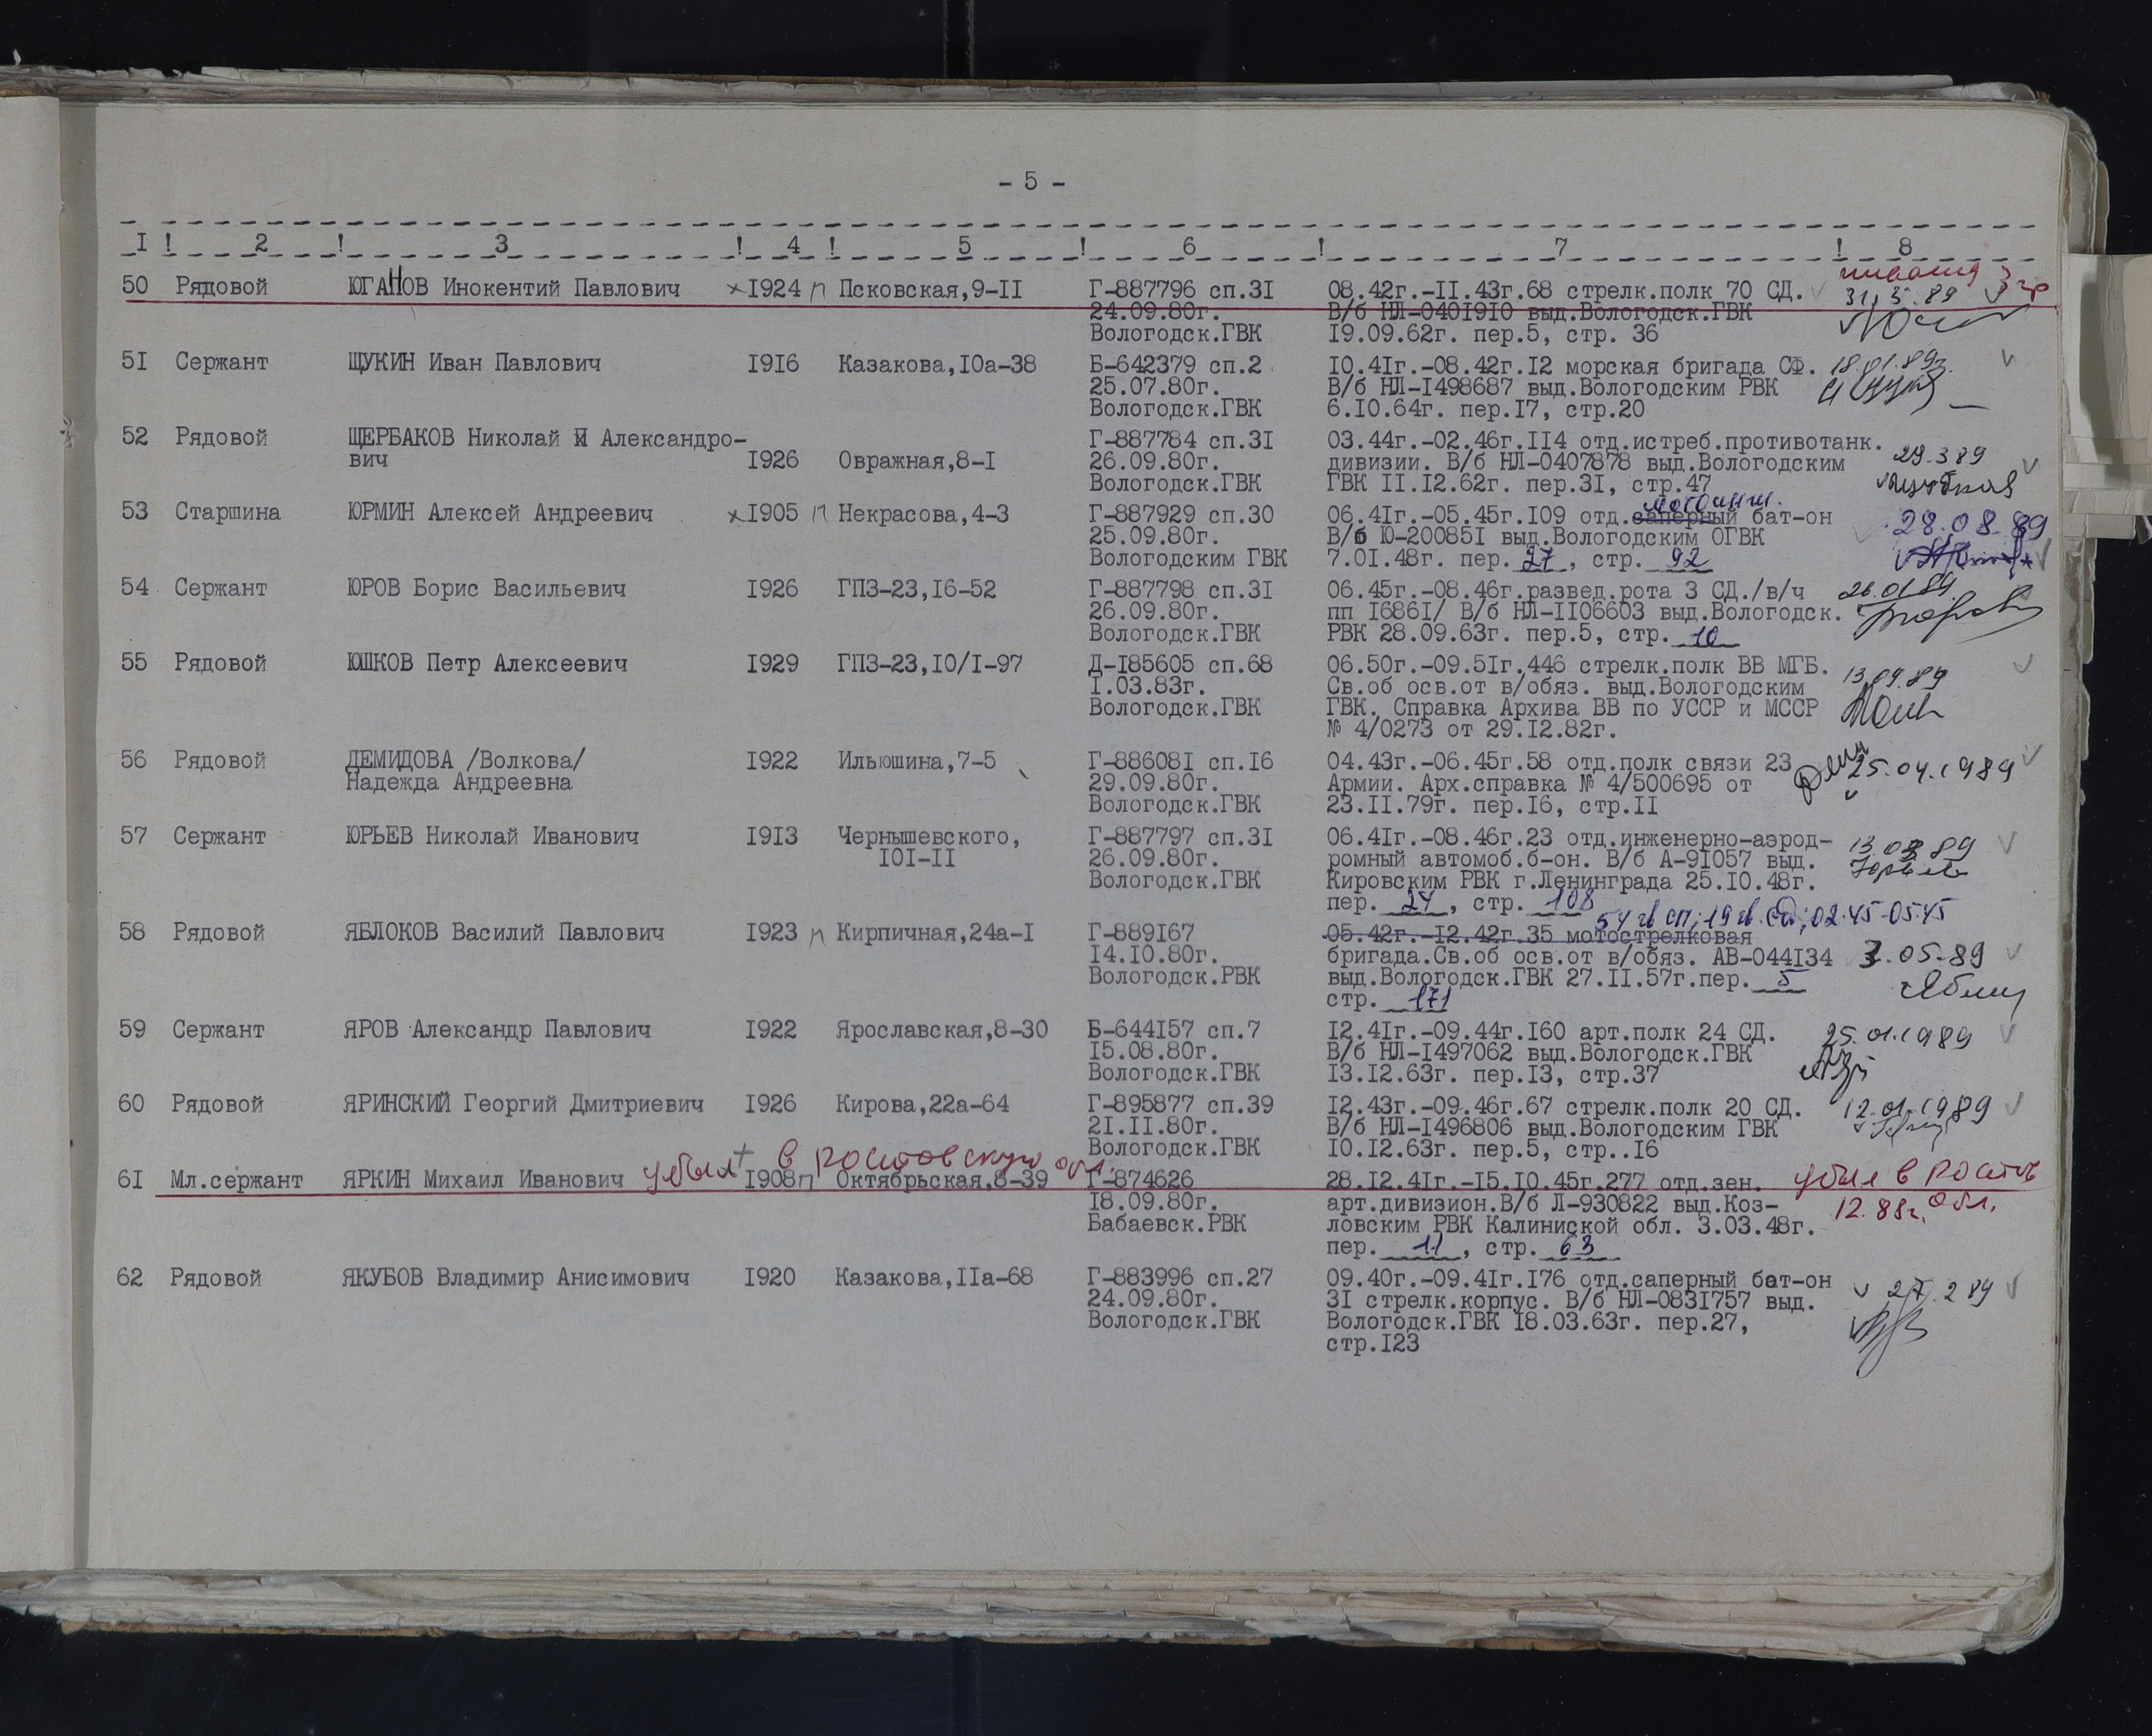 - 5 -
I ! 2 ! 3 ! 4 ! 5 ! 6 ! 7 ! 8
инвалид 3 гр
50 Рядовой ЮГАНОВ Инокентий Павлович х I924 п Псковская,9-II Г-887796 сп.3I 08.42г.-II.43г.68 стрелк.полк 70 СД. 31.5.89
24.09.80г. В/б НЛ-040I9I0 выд.Вологодск.ГВК
Вологодск.ГВК I9.09.62г. пер.5, стр. 36
5I Сержант ЩУКИН Иван Павлович I9I6 Казакова,I0а-38 Б-642379 сп.2 I0.4Iг.-08.42г.I2 морская бригада СФ. 18.01.89г.
25.07.80г. В/б НЛ-I498687 выд.Вологодским РВК
Вологодск.ГВК 6.I0.64г. пер.I7, стр.20
52 Рядовой ЩЕРБАКОВ Николай И Александро- Г-887784 сп.3I 03.44г.-02.46г.II4 отд.истреб.противотанк.
вич I926 Овражная,8-I 26.09.80г. дивизии. В/б НЛ-0407878 выд.Вологодским 29.3 89
Вологодск.ГВК ГВК II.I2.62г. пер.3I, стр.47
мотоинж.
53 Старшина ЮРМИН Алексей Андреевич х I905 п Некрасова,4-3 Г-887929 сп.30 06.4Iг.-05.45г.I09 отд.саперный бат-он 28.08.89
25.09.80г. В/б Ю-20085I выд.Вологодским ОГВК
Вологодским ГВК 7.0I.48г. пер. 27, стр. 92
54 Сержант ЮРОВ Борис Васильевич I926 ГПЗ-23,I6-52 Г-887798 сп.3I 06.45г.-08.46г.развед.рота 3 СД./в/ч 26.01.89.
26.09.80г. пп I686I/ В/б НЛ-II06603 выд.Вологодск.
Вологодск.ГВК РВК 28.09.63г. пер.5, стр. 10
55 Рядовой ЮШКОВ Петр Алексеевич I929 ГПЗ-23,I0/I-97 Д-I85605 сп.68 06.50г.-09.5Iг.446 стрелк.полк ВВ МГБ.
I.03.83г. Св.об осв.от в/обяз. выд.Вологодским 13.04.89
Вологодск.ГВК ГВК. Справка Архива ВВ по УССР и МССР
№ 4/0273 от 29.I2.82г.
56 Рядовой ДЕМИДОВА /Волкова/ I922 Ильюшина,7-5 Г-88608I сп.I6 04.43г.-06.45г.58 отд.полк связи 23 25.04.1989
Надежда Андреевна 29.09.80г. Армии. Арх.справка № 4/500695 от
Вологодск.ГВК 23.II.79г. пер.I6, стр.II
57 Сержант ЮРЬЕВ Николай Иванович I9I3 Чернышевского, Г-887797 сп.3I 06.4Iг.-08.46г.23 отд.инженерно-аэрод- 13.03 89
I0I-II 26.09.80г. ромный автомоб.б-он. В/б А-9I057 выд. Юрьев
Вологодск.ГВК Кировским РВК г.Ленинграда 25.I0.48г.
пер. 27, стр. 108
54 гв сп; 19 гв. сд; 02.45-05.45
58 Рядовой ЯБЛОКОВ Василий Павлович I923 п Кирпичная,24а-I Г-889I67 05.42г.-I2.42г.35 мотострелковая
I4.I0.80г. бригада.Св.об осв.от в/обяз. АВ-044I34 3.05.89
Вологодск.РВК выд.Вологодск.ГВК 27.II.57г.пер. 5
стр. 171
59 Сержант ЯРОВ Александр Павлович I922 Ярославская,8-30 Б-644I57 сп.7 I2.4Iг.-09.44г.I60 арт.полк 24 СД. 25.01.1989
I5.08.80г. В/б НЛ-I497062 выд.Вологодск.ГВК
Вологодск.ГВК I3.I2.63г. пер.I3, стр.37
60 Рядовой ЯРИНСКИЙ Георгий Дмитриевич I926 Кирова,22а-64 Г-895877 сп.39 I2.43г.-09.46г.67 стрелк.полк 20 СД. 12.01.1989
2I.II.80г. В/б НЛ-I496806 выд.Вологодским ГВК
Вологодск.ГВК I0.I2.63г. пер.5, стр..I6
убыл в Ростовскую обл.
6I Мл.сержант ЯРКИН Михаил Иванович I908 п Октябрьская,8-39 Г-874626 28.I2.4Iг.-I5.I0.45г.277 отд.зен. убыл в Ростов
I8.09.80г. арт.дивизион.В/б Л-930822 выд.Коз- 12.88г. обл.
Бабаевск.РВК ловским РВК Калиниской обл. 3.03.48г.
пер. 11, стр. 63
62 Рядовой ЯКУБОВ Владимир Анисимович I920 Казакова,IIа-68 Г-883996 сп.27 09.40г.-09.4Iг.I76 отд.саперный бат-он 27.2 89
24.09.80г. 3I стрелк.корпус. В/б НЛ-083I757 выд.
Вологодск.ГВК I8.03.63г. пер.27,
стр.I23